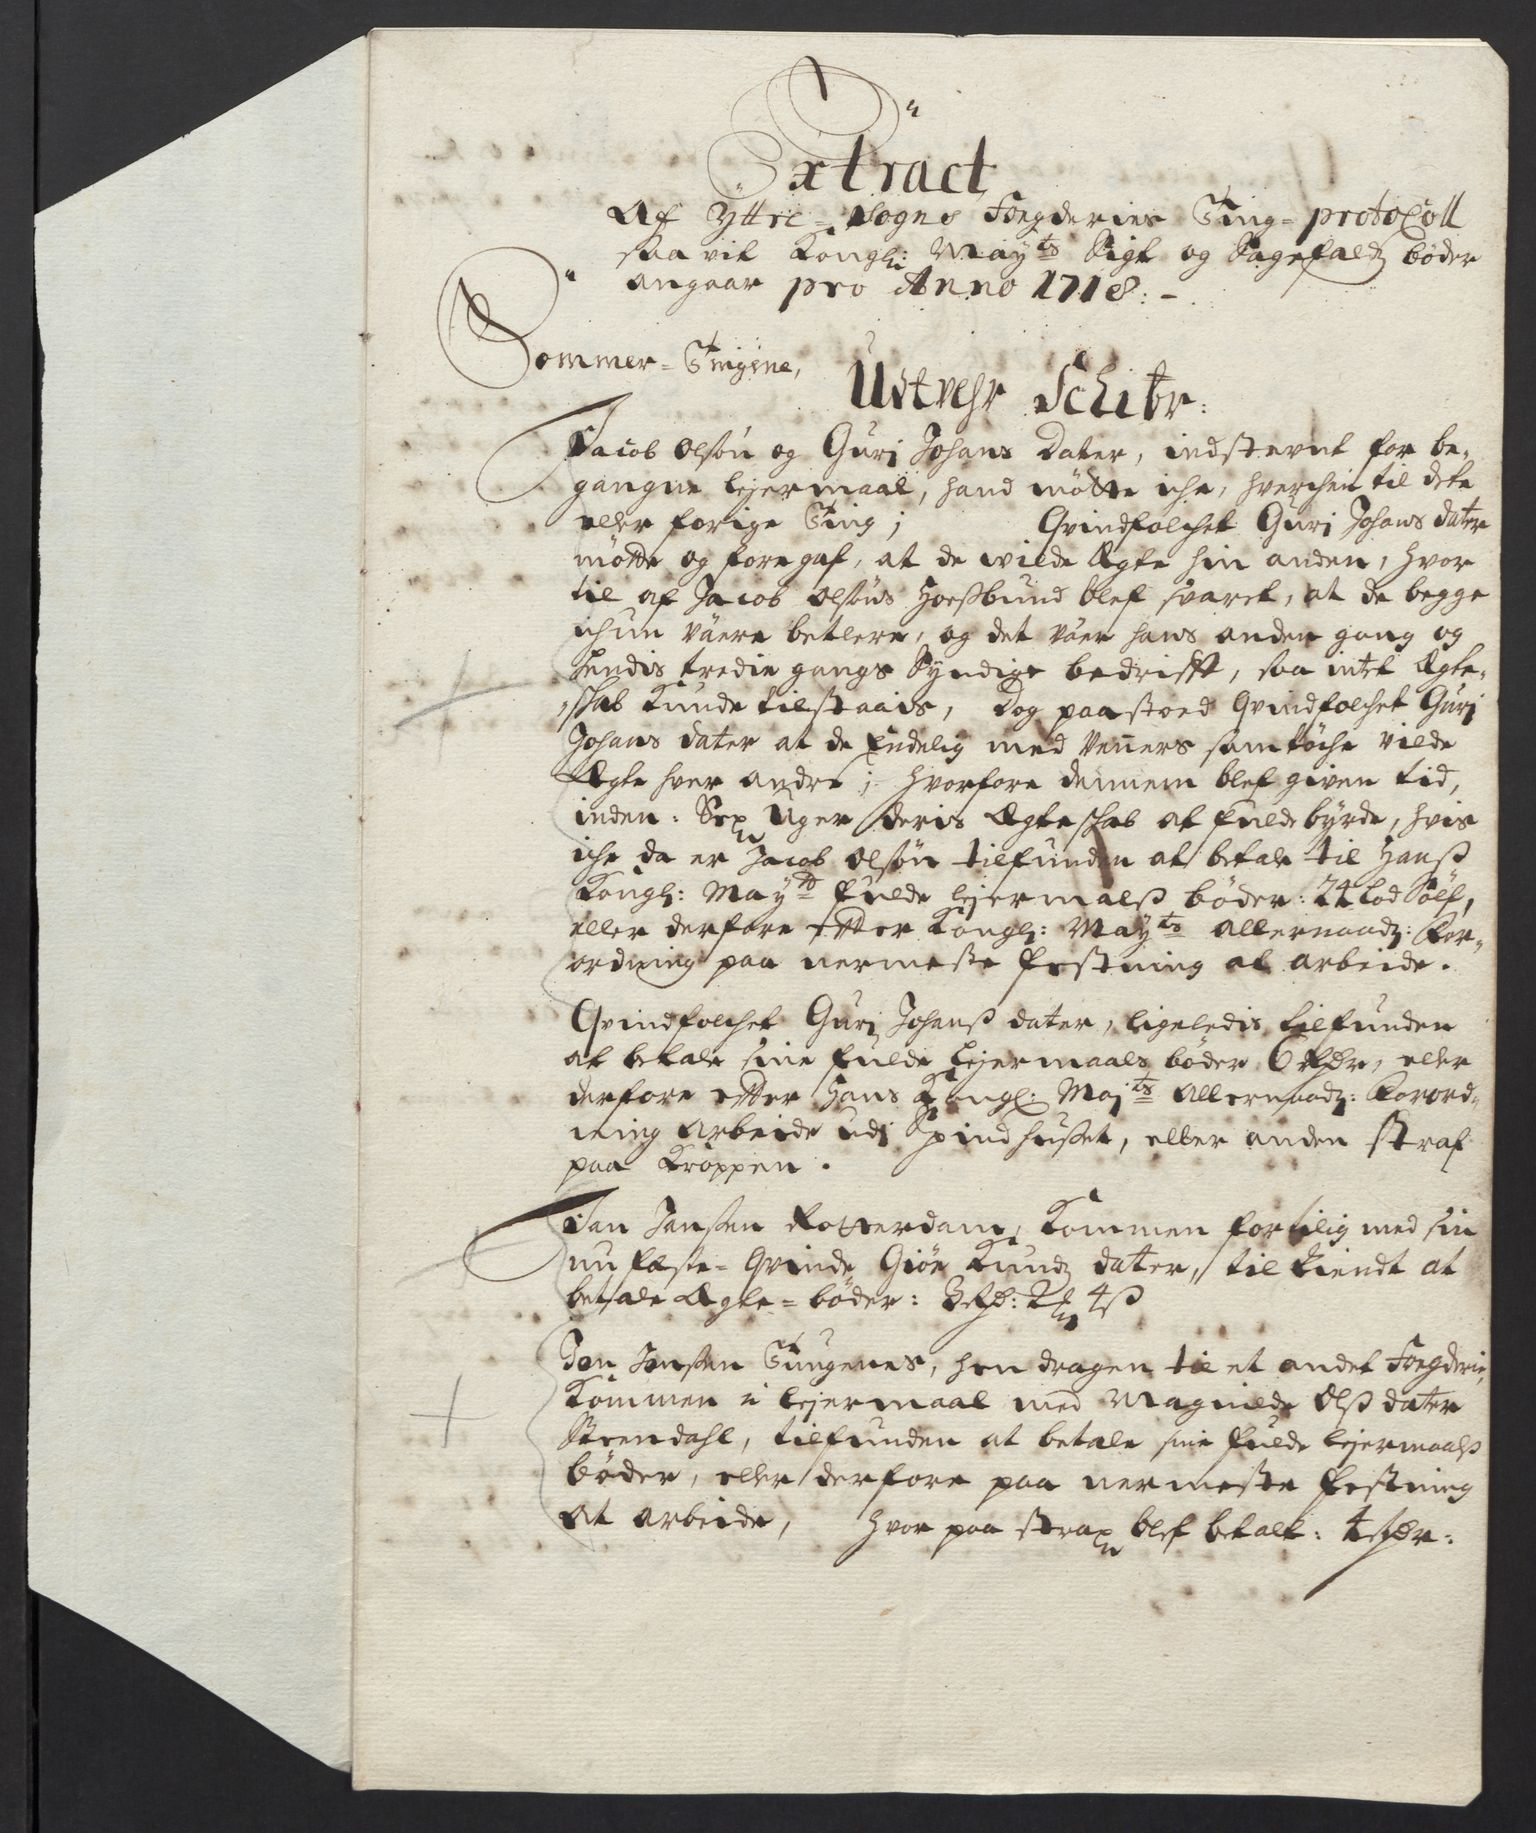 Extract
Af Yttre=Sogns Foegderies Ting=protocoll
saa vit Kongl: Mayts Sigt og Sagefaldz bøder
angaar pro Anno 1718:-
Sommer=Tingene,
Udtvehr Schibr:
Jacob Olsøn og Guri Johans Dater, indstevnt for be-
gangne leyermaal, hand møtte iche, hverchen til dete
eller forige Ting; Qvindfolchet Guri Johans dater
møtte og foregaf, at de wilde Ægte hin anden, hvor
til af Jacob Olsøns Hoesbund blef svaret, at de begge
ichun väere betlere, og det väer hans anden gang og
hendis tredie gangs Syndige bedrifft, saa intet Ægte-
schab kunde tilstaais, Dog paastoed Qvindfolchet Guri
Johans dater at de Endelig med Veners samtøche vilde
Ægte hver andre; hvorfore dennem blef given tid,
inden: Sex Uger deris Ægteschab at fuldebyrde, hvis
iche da er Jacob Olsøn tilfunden at betale til Hanß
Kongl: Mayts fulde leyermalß bøder: 24 lod Sølf,
eller derfore etter Kongl: Mayts allernaadz: For-
ordning paa nermeste festning at arbeide.
Qvindfolchet Guri Johanß dater, ligeledis tilfunden
at betale sine fulde Leyermaals bøder 6 Rdr, eller
derfore etter Hans Kongl: Majts Allernaadz: Forord-
ning arbeide udi Spindhuset, eller anden straf
paa kroppen.
Jan Janßen Rotterdam, kommen fortilig med sin
nu feste=Qvinde Giøe Knudz dater, tilkiendt at
betale Ægte=bøder: 3 Rd: 2 4ß
Jon Jonßen Tungenes, hen dragen til et andet Foegderie,
kommen i leyermaal med Magnilde Olß dater
Steendahl, tilfunden at betale sine fulde leyermaalß
bøder, eller derfore paa nermeste festning
at arbeide, hvor paa strax blef betalt: 4 Rdr: